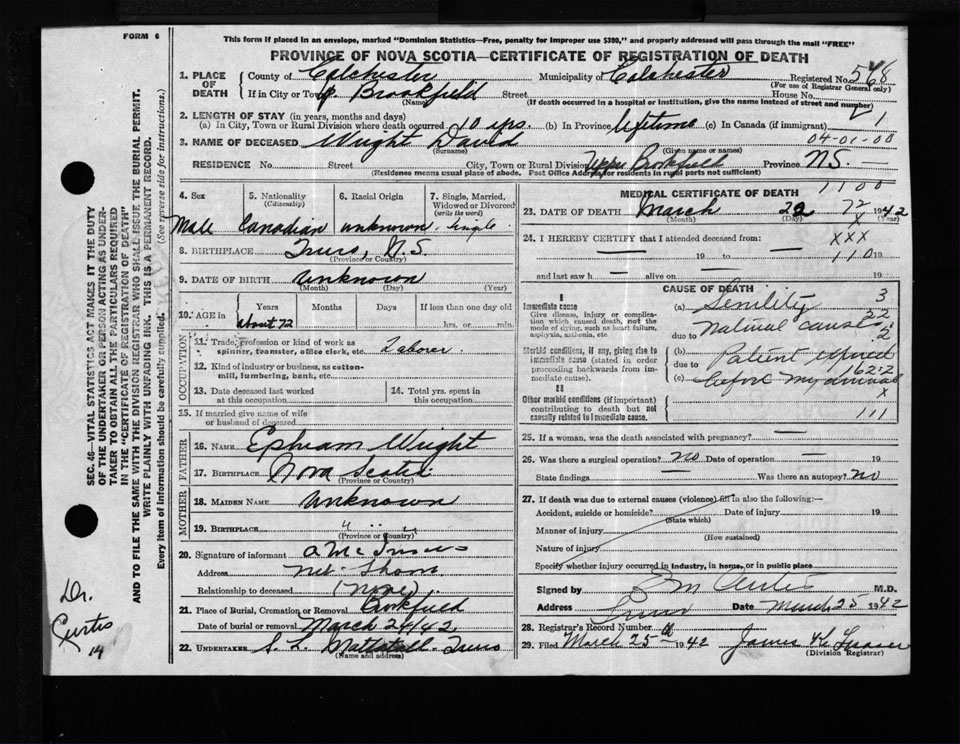 FORM 6
This form if placed in an envelope, marked "Dominion Statistics—Free, penalty for improper use $300," and properly addressed will pass through the mail "FREE"
PROVINCE OF NOVA SCOTIA—CERTIFICATE OF REGISTRATION OF DEATH
1. PLACE OF DEATH
County of Colchester Municipality of Colchester Registered No. 568
(For use of Registrar General only)
If in City or Town Brookfield Street House No.
(Name) (If death occurred in a hospital or institution, give the name instead of street and number)
2. LENGTH OF STAY (in years, months and days)
(a) In City, Town or Rural Division where death occurred 10 yrs. (b) In Province lifetime (c) In Canada (if immigrant)
1
04-01-00
3. NAME OF DECEASED Wright David
(Surname) (Given name or names)
RESIDENCE No. Street City, Town or Rural Division Upper Brookfield Province N.S.
(Residence means usual place of abode. Post Office Address for residents in rural parts not sufficient)
4. Sex 5. Nationality (Citizenship) 6. Racial Origin 7. Single, Married, Widowed or Divorced (write the word)
Male Canadian unknown Single
8. BIRTHPLACE Truro, N.S.
(Province or Country)
9. DATE OF BIRTH unknown
(Month) (Day) (Year)
10. AGE in Years Months Days If less than one day old
about 72 hrs. or min.
OCCUPATION
11. Trade, profession or kind of work as spinner, teamster, office clerk, etc. Laborer.
12. Kind of industry or business, as cotton-mill, lumbering, bank, etc.
13. Date deceased last worked at this occupation 14. Total yrs. spent in this occupation
15. If married give name of wife or husband of deceased
FATHER
16. NAME Ephram Wright
17. BIRTHPLACE Nova Scotia
(Province or Country)
MOTHER
18. MAIDEN NAME unknown
19. BIRTHPLACE " "
(Province or Country)
20. Signature of informant
Address
Relationship to deceased (none)
21. Place of Burial, Cremation or Removal Brookfield
Date of burial or removal March 24/42
22. UNDERTAKER S. L. Mattatall Truro
(Name and address)
1100
MEDICAL CERTIFICATE OF DEATH
23. DATE OF DEATH March 22 72 1942
(Month) (Day) (Year)
x
24. I HEREBY CERTIFY that I attended deceased from xxx
19 to 110 19
and last saw h alive on 19
CAUSE OF DEATH
Immediate cause
Give disease, injury or complication which caused death, not the mode of dying, such as heart failure, asphyxia, asthenia, etc
(a) Senility 3
22
due to Natural causes 2
Morbid conditions, if any, giving rise to immediate cause (stated in order proceeding backwards from immediate cause).
(b) Patient expired
due to 162.2
(c) before my arrival
x
Other morbid conditions (if important) contributing to death but not causally related to immediate cause.
111
25. If a woman, was the death associated with pregnancy?
26. Was there a surgical operation? no Date of operation 19
State findings Was there an autopsy? no
27. If death was due to external causes (violence) fill in also the following:—
Accident, suicide or homicide? Date of injury 19
(State which)
Manner of injury
(How sustained)
Nature of injury
Specify whether injury occurred in industry, in home, or in public place
Signed by M.D.
Address Truro Date March 25 1942
28. Registrar's Record Number
29. Filed March 25th 1942 James
(Division Registrar)
SEC. 46—VITAL STATISTICS ACT MAKES IT THE DUTY
OF THE UNDERTAKER OR PERSON ACTING AS UNDER-
TAKER TO OBTAIN ALL THE PARTICULARS REQUIRED
IN THE "CERTIFICATE OF REGISTRATION OF DEATH"
AND TO FILE THE SAME WITH THE DIVISION REGISTRAR WHO SHALL ISSUE THE BURIAL PERMIT.
WRITE PLAINLY WITH UNFADING INK. THIS IS A PERMANENT RECORD.
Every item of information should be carefully supplied. (See reverse side for instructions.)
Dr.
Curtis
14